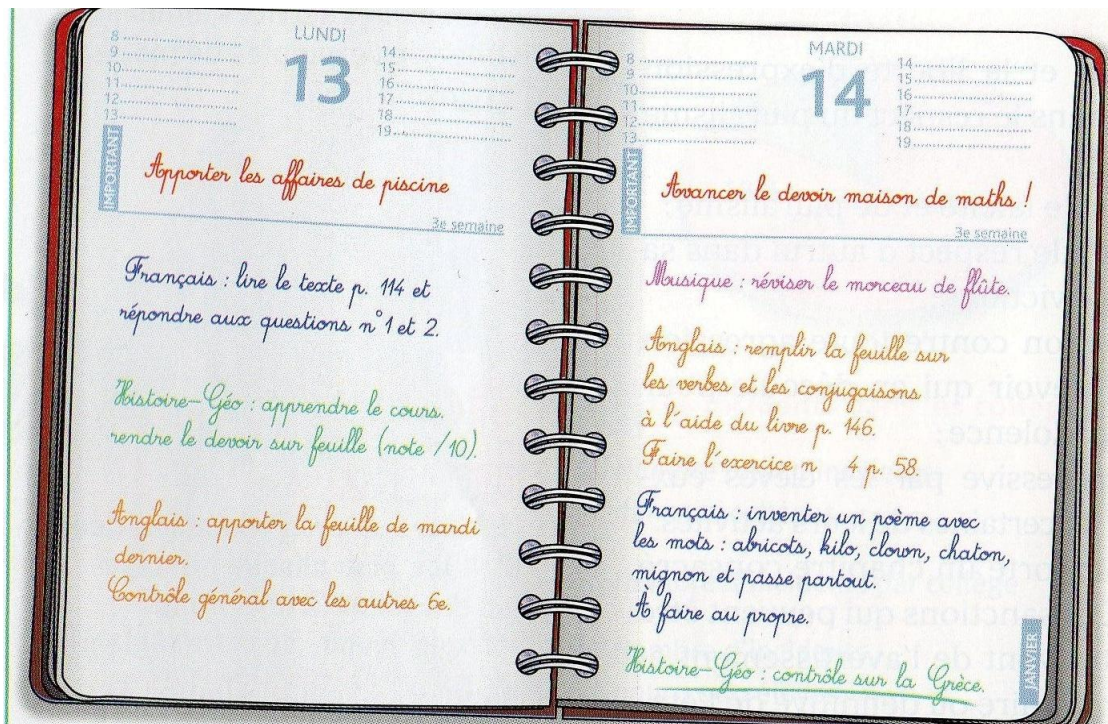 LUNDI
13
8
9
10
11
12
13
14
15
16
17
18
19
IMPORTANT
Apporter les affaires de piscine
3e semaine
Français : lire le texte p. 114 et
répondre aux questions n°1 et 2.
Histoire-Géo : apprendre le cours.
rendre le devoir sur feuille (note /10).
Anglais : apporter la feuille de mardi
dernier.
Contrôle général avec les autres 6e.
MARDI
14
8
9
10
11
12
13
14
15
16
17
18
19
IMPORTANT
Avancer le devoir maison de maths !
3e semaine
Musique : réviser le morceau de flûte.
Anglais : remplir la feuille sur
les verbes et les conjugaisons
à l'aide du livre p. 146.
Faire l'exercice n 4 p. 58.
Français : inventer un poème avec
les mots : abricots, kilo, clown, chaton,
mignon et passe partout.
À faire au propre.
Histoire-Géo : contrôle sur la Grèce.
JANVIER